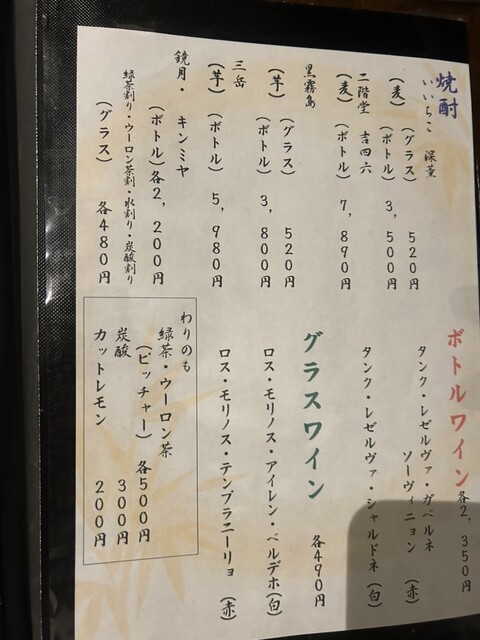 焼酎
いいちこ 深薫
(麦) (グラス) 520円
(ボトル) 3,500円
二階堂 吉四六
(麦) (ボトル) 7,890円
黒霧島
(芋) (グラス) 520円
(ボトル) 3,800円
三岳
(芋) (ボトル) 5,980円
鏡月・キンミヤ
(ボトル)各2,200円
緑茶割り・ウーロン茶割・水割り・炭酸割り
(グラス) 各480円
ボトルワイン 各2,350円
タンク・レゼルヴァ・ガベルネ
ソーヴィニョン (赤)
タンク・レゼルヴァ・シャルドネ (白)
グラスワイン 各490円
ロス・モリノス・アイレン・ベルデホ(白)
ロス・モリノス・テンプラニーリョ (赤)
わりのも
緑茶・ウーロン茶
(ピッチャー) 各500円
炭酸 300円
カットレモン 200円